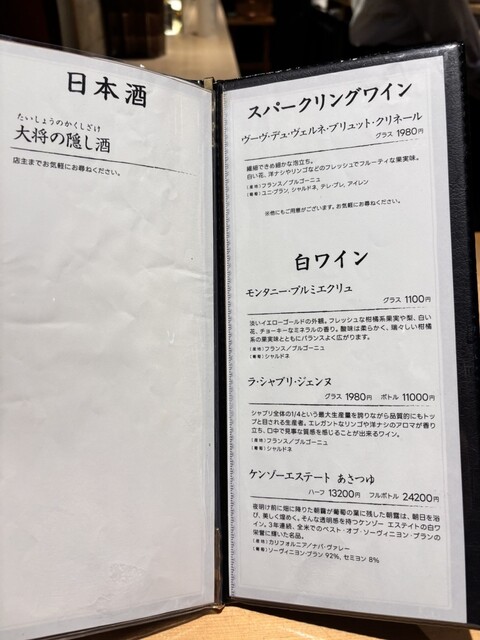 日本酒
たいしょうのかくしざけ
大将の隠し酒
店主までお気軽にお尋ねください。
スパークリングワイン
ヴーヴ・デュ・ヴェルネ・ブリュット・クリネール
グラス 1980円
繊細できめ細かな泡立ち。
白い花、洋ナシやリンゴなどのフレッシュでフルーティな果実味。
(産地)フランス／ブルゴーニュ
(葡萄)ユニ・ブラン, シャルドネ, テレ・ブレ, アイレン
※他にもご用意がございます。お気軽にお尋ねください。
白ワイン
モンタニー・プルミエクリュ
グラス 1100円
淡いイエローゴールドの外観。フレッシュな柑橘系果実や梨、白い
花、チョーキーなミネラルの香り。酸味は柔らかく、瑞々しい柑橘
系の果実味とともにバランスよく広がります。
(産地)フランス／ブルゴーニュ
(葡萄)シャルドネ
ラ・シャブリ・ジェンヌ
グラス 1980円 ボトル 11000円
シャブリ全体の1/4という最大生産量を誇りながら品質的にもトッ
プと目される生産者。エレガントなリンゴや洋ナシのアロマが香り
立ち、口中で見事な質感を感じることが出来るワイン。
(産地)フランス／ブルゴーニュ
(葡萄)シャルドネ
ケンゾーエステート あさつゆ
ハーフ 13200円 フルボトル 24200円
夜明け前に畑に降りた朝霧が葡萄の葉に残した朝露は、朝日を浴
び、美しく煌めく。そんな透明感を持つケンゾー エステイトの白ワ
イン。3年連続、全米でのベスト・オブ・ソーヴィニヨン・ブランの
栄誉に輝いた名品。
(産地)カリフォルニア／ナパ・ヴァレー
(葡萄)ソーヴィニヨン・ブラン 92%, セミヨン 8%